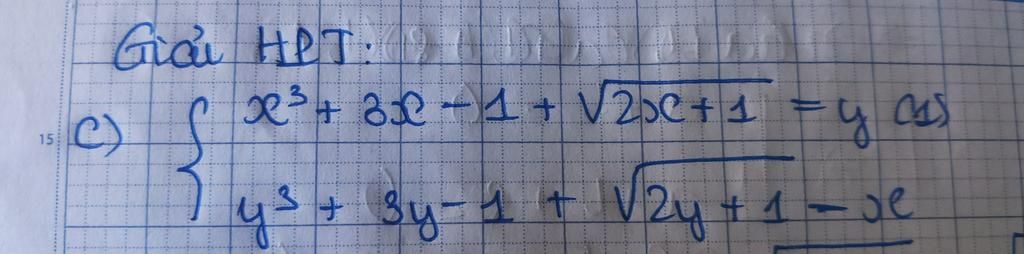 Giải HPT:
15 c) { x³ + 3x - 1 + √(2x + 1) = y (1)
y³ + 3y - 1 + √(2y + 1) - x